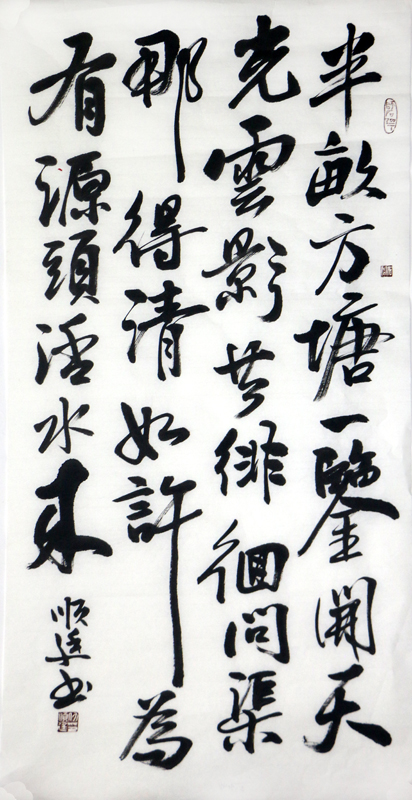 半畝方塘一鑒開天
光雲影共徘徊問渠
那得清如許為
有源頭活水來
順達书